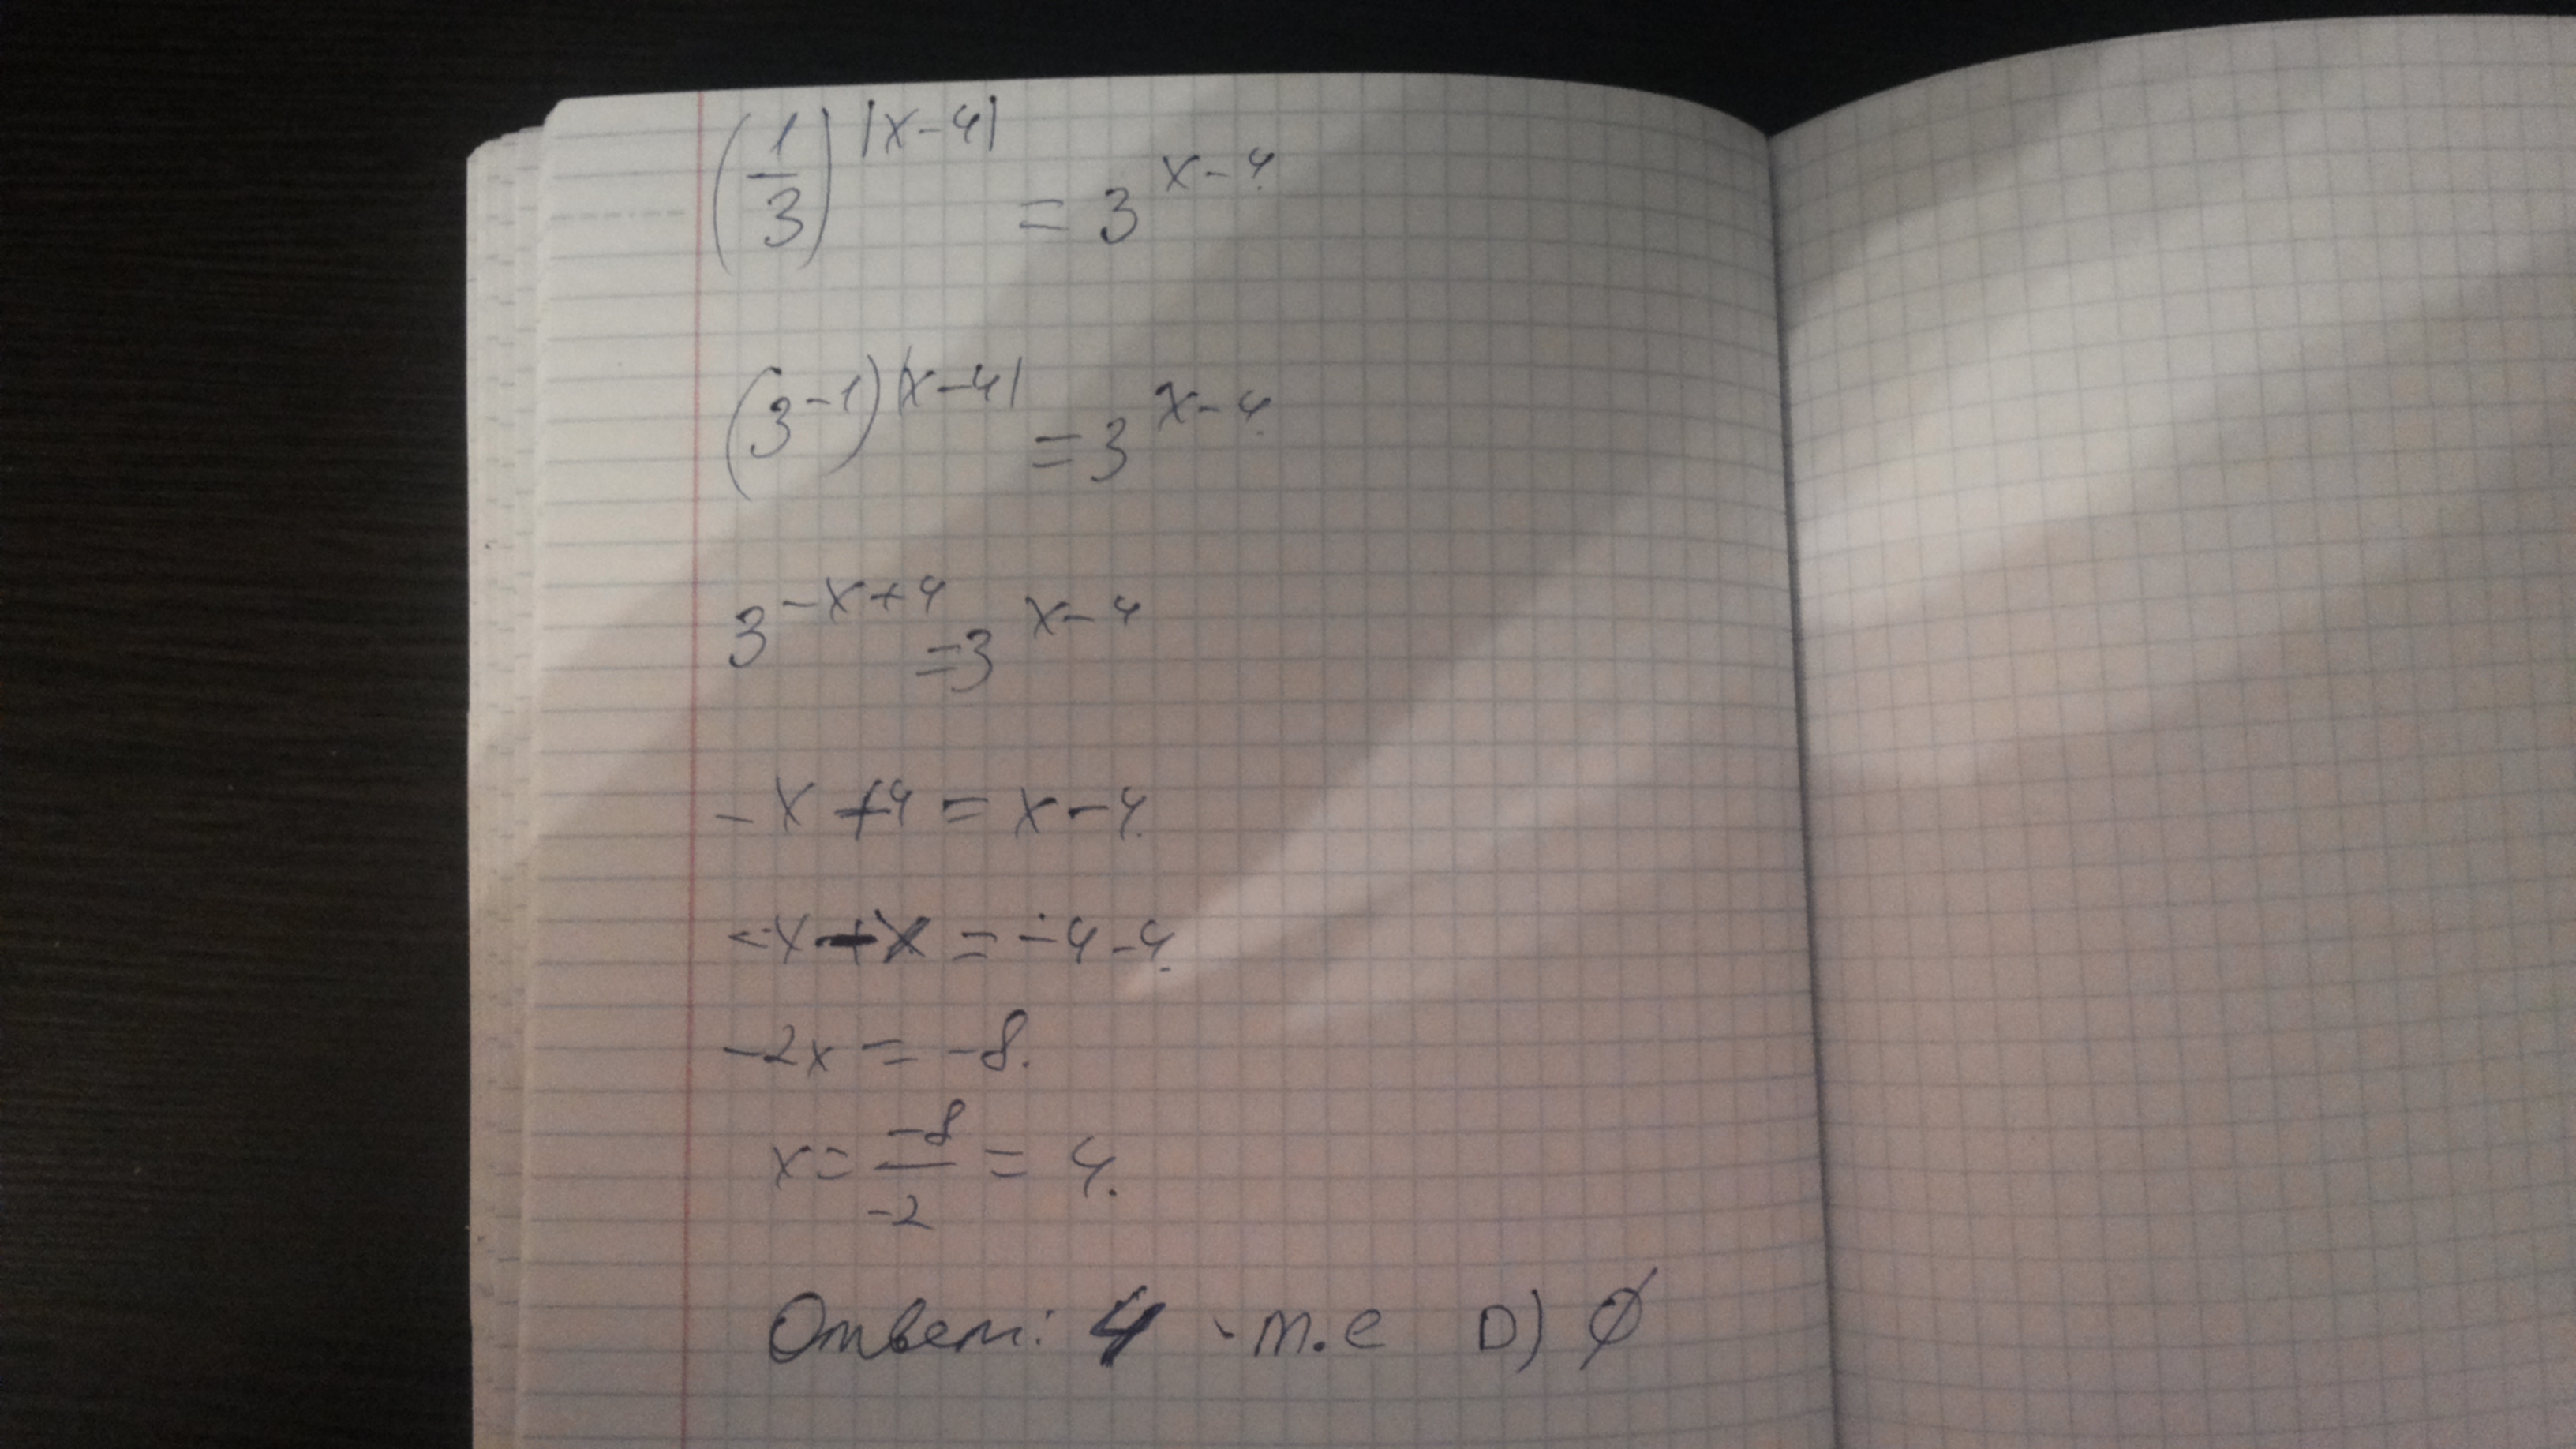 (1/3)^|x-4| = 3^x-4
(3^-1)^|x-4| = 3^x-4
3^-x+4 = 3^x-4
-x+4 = x-4.
-x-x = -4-4.
-2x = -8.
x = -8/-2 = 4.
Ответ: 4 - т.е D) ∅